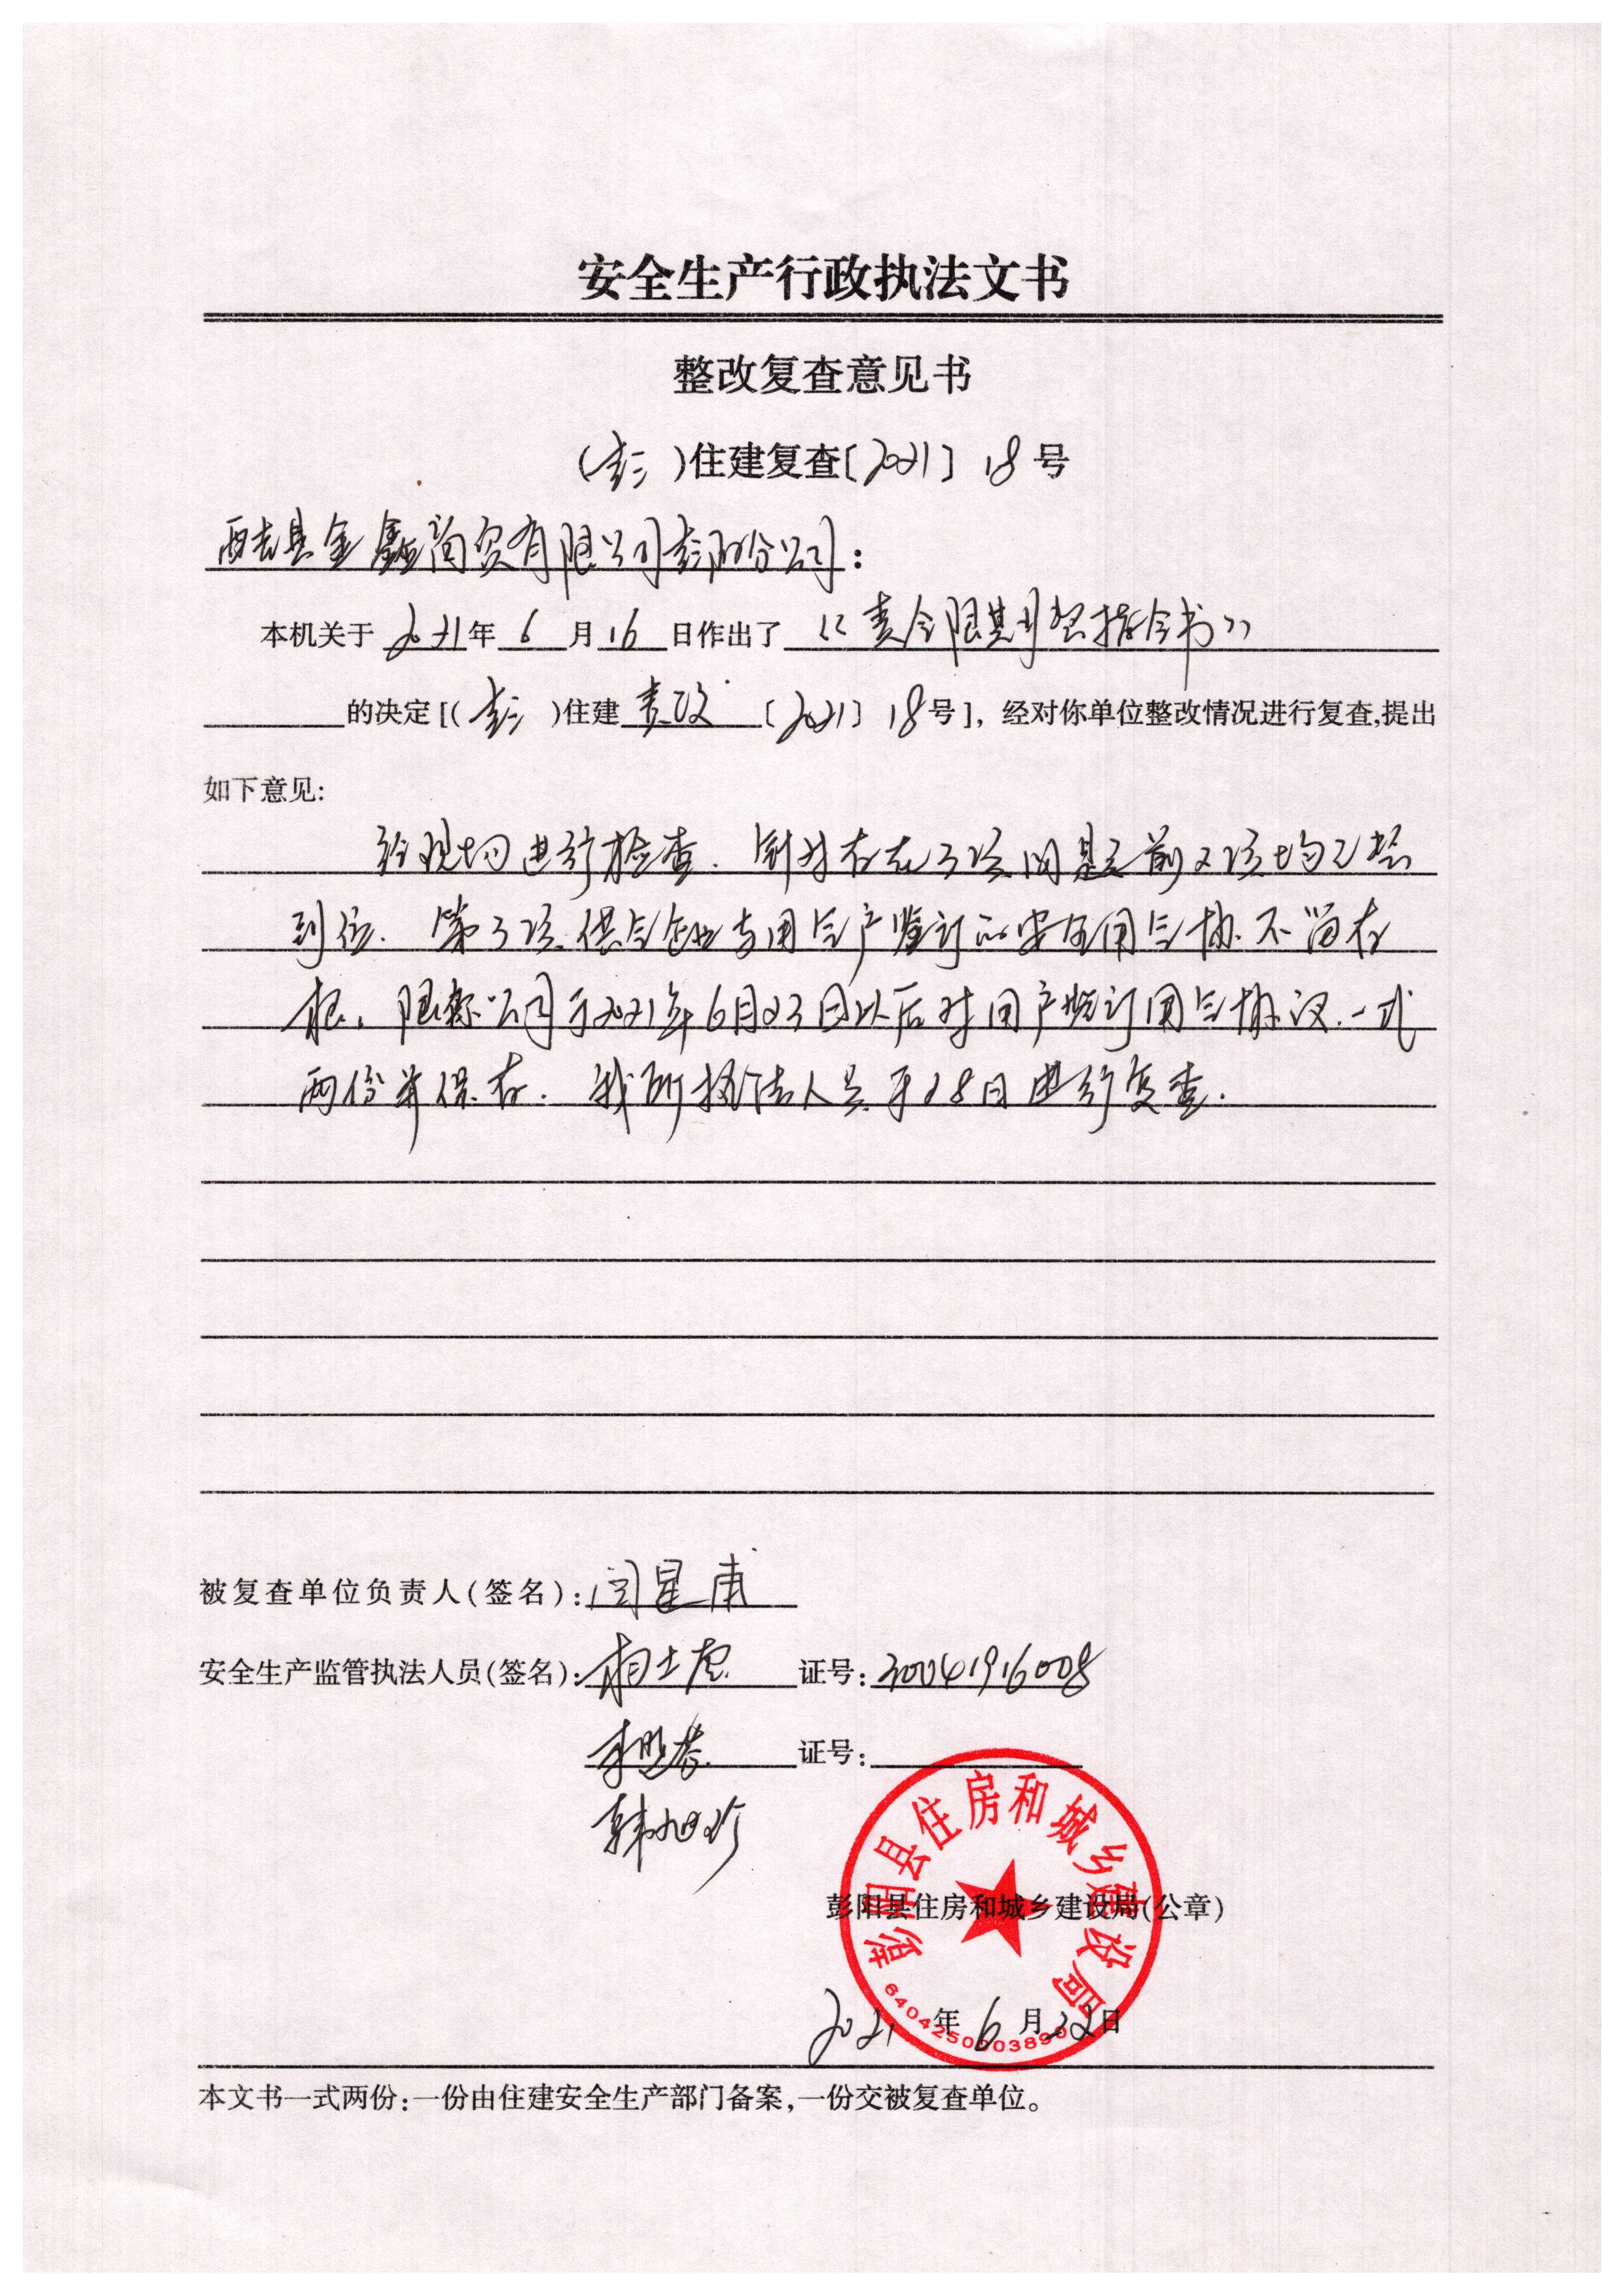 安全生产行政执法文书
整改复查意见书
(彭)住建复查〔2021〕18号
西吉县金鑫商贸有限公司彭阳分公司：
本机关于2021年6月16日作出了《责令限期整改指令书》
的决定[(彭)住建责改〔2021〕18号]，经对你单位整改情况进行复查,提出
如下意见:
经现场进行检查.针对存在3项问题之前2项均已整
到位.第3项供气企业与用气户签订的安全用气协不留存
根。限你公司于2021年6月23日以后对用户签订用气协议.一式
两份并保存.我所执法人员于28日进行复查.
被复查单位负责人(签名):闫星甫
安全生产监管执法人员(签名): 证号:30041916008
证号:
韩旭珍
彭阳县住房和城乡建设局(公章)
2021年6月22日
彭阳县住房和城乡建设局
本文书一式两份:一份由住建安全生产部门备案,一份交被复查单位。